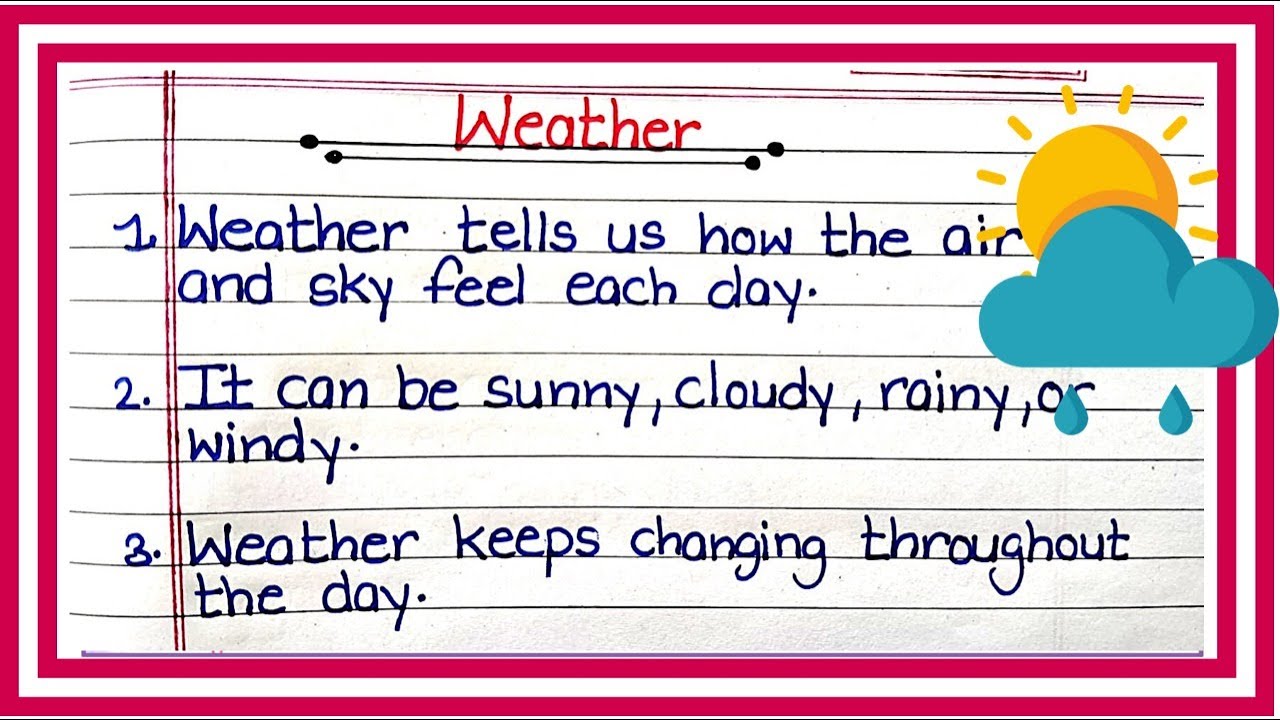 Weather
1. Weather tells us how the air
and sky feel each day.
2. It can be sunny, cloudy, rainy, or
windy.
3. Weather keeps changing throughout
the day.